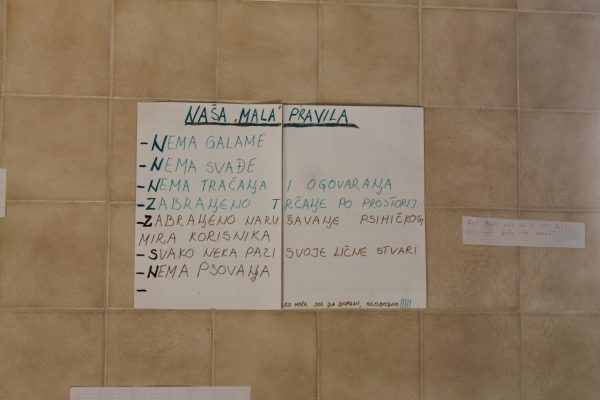 NAŠA "MALA" PRAVILA
- NEMA GALAME
- NEMA SVAĐE
- NEMA TRAČANJA I OGOVARANJA
- ZABRANJENO TRČANJE PO PROSTORIJ.
- ZABRANJENO NARUŠAVANJE PSIHIČKOG
MIRA KORISNIKA
- SVAKO NEKA PAZI SVOJE LIČNE STVARI
- NEMA PSOVANJA
-
KO HOĆE JOŠ DA DOPUNI, SLOBODNO!!!!!